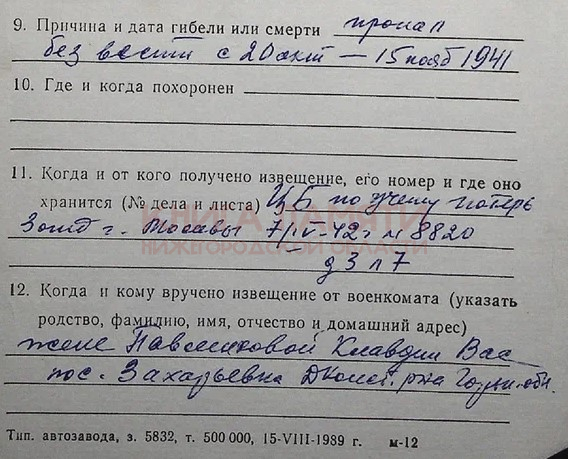 9. Причина и дата гибели или смерти пропал
без вести с 20 окт — 15 нояб 1941
10. Где и когда похоронен
11. Когда и от кого получено извещение, его номер и где оно
хранится (№ дела и листа) ЦБ по учету потерь
3 отд г. Москвы 7/IV-42. № 8820
д 3 л 7
КНИГА ПАМЯТИ
НИЖЕГОРОДСКОЙ ОБЛАСТИ
12. Когда и кому вручено извещение от военкомата (указать
родство, фамилию, имя, отчество и домашний адрес)
жене Клавдии Вас
пос. Захарьевка обл.
Тип. автозавода, з. 5832, т. 500 000, 15-VIII-1989 г. м-12